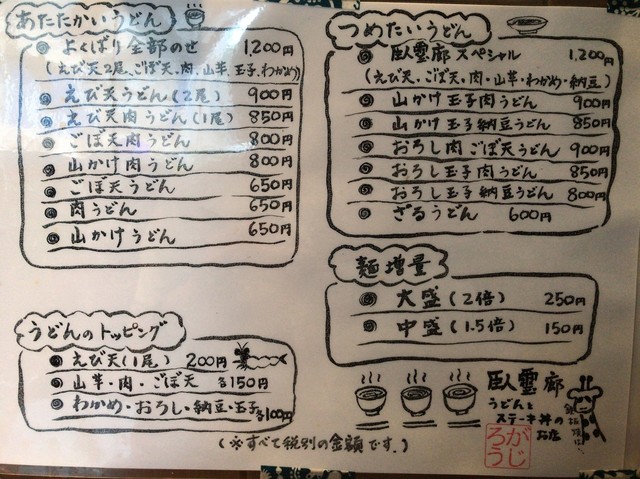 あたたかいうどん
よくばり全部のせ 1,200円
(えび天2尾、ごぼ天、肉、山芋、玉子、わかめ)
えび天うどん(2尾) 900円
えび天肉うどん(1尾) 850円
ごぼ天肉うどん 800円
山かけ肉うどん 800円
ごぼ天うどん 650円
肉うどん 650円
山かけうどん 650円
うどんのトッピング
えび天(1尾) 200円
山芋・肉・ごぼ天 各150円
わかめ・おろし・納豆・玉子 各100円
つめたいうどん
臥雲廊スペシャル 1,200円
(えび天、ごぼ天、肉・山芋・わかめ・納豆)
山かけ玉子肉うどん 900円
山かけ玉子納豆うどん 850円
おろし肉ごぼ天うどん 900円
おろし玉子肉うどん 850円
おろし玉子納豆うどん 800円
ざるうどん 600円
麺増量
大盛(2倍) 250円
中盛(1.5倍) 150円
臥雲廊
うどんと
ステーキ丼の
お店
がじ
ろう
(※すべて税別の金額です。)